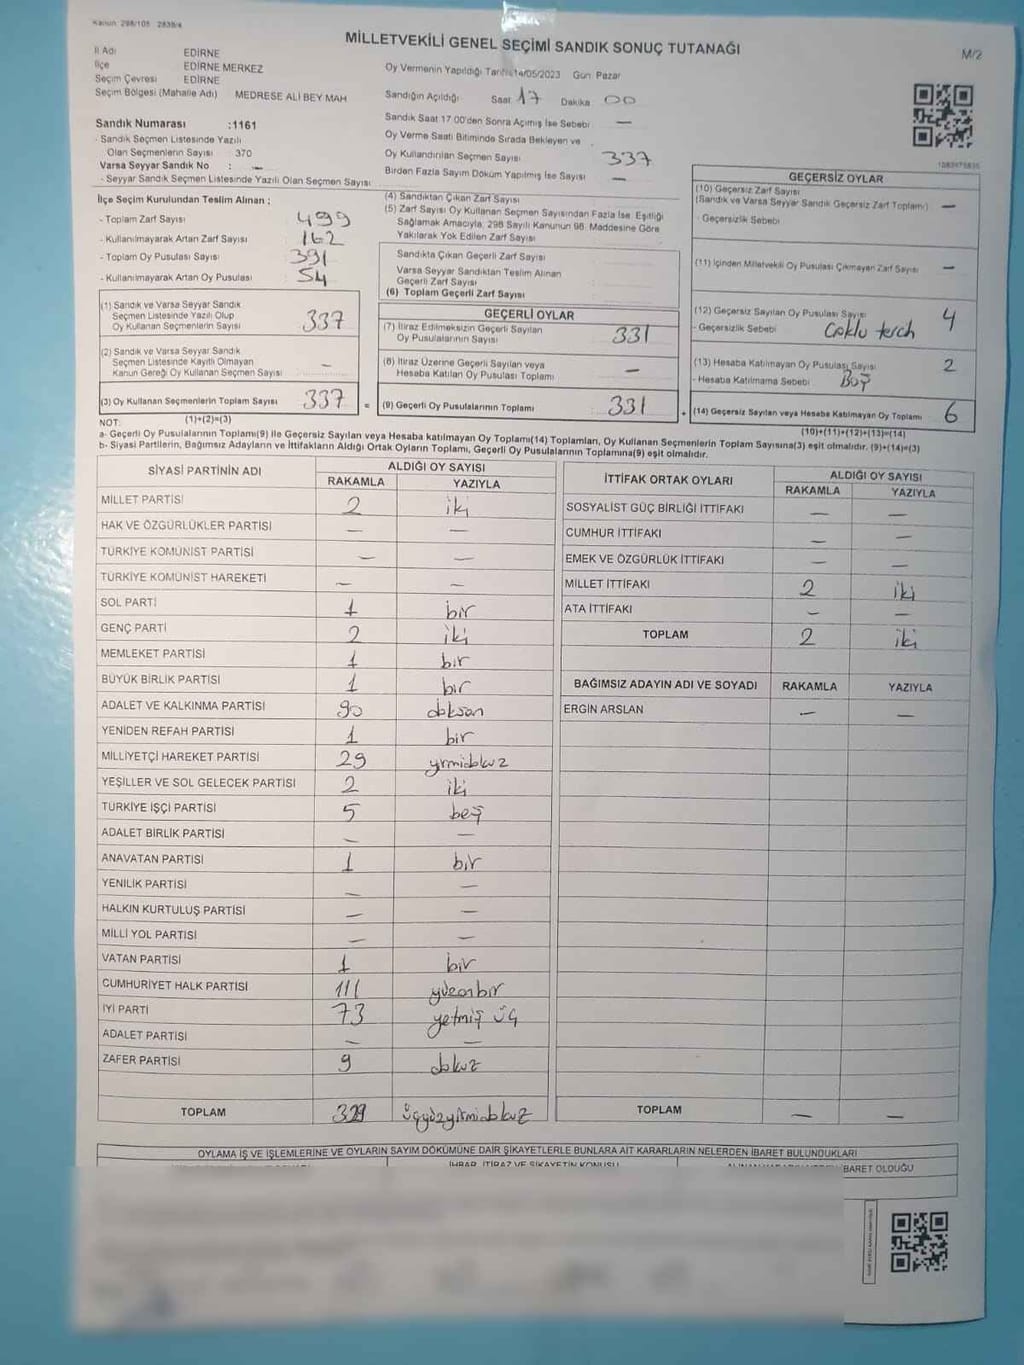 Kanun 298/105 2839/4
MİLLETVEKİLİ GENEL SEÇİMİ SANDIK SONUÇ TUTANAĞI
M/2
İl Adı EDİRNE
İlçe EDİRNE MERKEZ
Seçim Çevresi EDİRNE
Seçim Bölgesi (Mahalle Adı) MEDRESE ALİ BEY MAH
Oy Vermenin Yapıldığı Tarihi 14/05/2023 Gün Pazar
Sandığın Açıldığı Saat 17 Dakika 00
Sandık Saat 17.00'den Sonra Açılmış İse Sebebi —
Oy Verme Saati Bitiminde Sırada Bekleyen ve
Oy Kullandırılan Seçmen Sayısı 337
Birden Fazla Sayım Döküm Yapılmış İse Sayısı —
Sandık Numarası :1161
- Sandık Seçmen Listesinde Yazılı
Olan Seçmenlerin Sayısı 370
Varsa Seyyar Sandık No : —
- Seyyar Sandık Seçmen Listesinde Yazılı Olan Seçmen Sayısı
İlçe Seçim Kurulundan Teslim Alınan :
- Toplam Zarf Sayısı 499
- Kullanılmayarak Artan Zarf Sayısı 162
- Toplam Oy Pusulası Sayısı 391
- Kullanılmayarak Artan Oy Pusulası 54
(1) Sandık ve Varsa Seyyar Sandık
Seçmen Listesinde Yazılı Olup
Oy Kullanan Seçmenlerin Sayısı 337
(2) Sandık ve Varsa Seyyar Sandık
Seçmen Listesinde Kayıtlı Olmayan
Kanun Gereği Oy Kullanan Seçmen Sayısı —
(3) Oy Kullanan Seçmenlerin Toplam Sayısı 337 =
(1)+(2)=(3)
(4) Sandıktan Çıkan Zarf Sayısı
(5) Zarf Sayısı Oy Kullanan Seçmen Sayısından Fazla İse, Eşitliği
Sağlamak Amacıyla, 298 Sayılı Kanunun 98. Maddesine Göre
Yakılarak Yok Edilen Zarf Sayısı
Sandıkta Çıkan Geçerli Zarf Sayısı
Varsa Seyyar Sandıktan Teslim Alınan
Geçerli Zarf Sayısı
(6) Toplam Geçerli Zarf Sayısı
GEÇERLİ OYLAR
(7) İtiraz Edilmeksizin Geçerli Sayılan
Oy Pusulalarının Sayısı 331
(8) İtiraz Üzerine Geçerli Sayılan veya
Hesaba Katılan Oy Pusulası Toplamı —
(9) Geçerli Oy Pusulalarının Toplamı 331 +
GEÇERSİZ OYLAR
(10) Geçersiz Zarf Sayısı
(Sandık ve Varsa Seyyar Sandık Geçersiz Zarf Toplamı) —
- Geçersizlik Sebebi
(11) İçinden Milletvekili Oy Pusulası Çıkmayan Zarf Sayısı —
(12) Geçersiz Sayılan Oy Pusulası Sayısı 4
- Geçersizlik Sebebi Çoklu terch
(13) Hesaba Katılmayan Oy Pusulası Sayısı 2
- Hesaba Katılmama Sebebi Boş
(14) Geçersiz Sayılan veya Hesaba Katılmayan Oy Toplamı 6
(10)+(11)+(12)+(13)=(14)
NOT:
a- Geçerli Oy Pusulalarının Toplamı(9) ile Geçersiz Sayılan veya Hesaba katılmayan Oy Toplamı(14) Toplamları, Oy Kullanan Seçmenlerin Toplam Sayısına(3) eşit olmalıdır. (9)+(14)=(3)
b- Siyasi Partilerin, Bağımsız Adayların ve İttifakların Aldığı Ortak Oyların Toplamı, Geçerli Oy Pusulalarının Toplamına(9) eşit olmalıdır.
SİYASİ PARTİNİN ADI ALDIĞI OY SAYISI
RAKAMLA YAZIYLA
MİLLET PARTİSİ 2 iki
HAK VE ÖZGÜRLÜKLER PARTİSİ — —
TÜRKİYE KOMÜNİST PARTİSİ — —
TÜRKİYE KOMÜNİST HAREKETİ — —
SOL PARTİ 1 bir
GENÇ PARTİ 2 iki
MEMLEKET PARTİSİ 1 bir
BÜYÜK BİRLİK PARTİSİ 1 bir
ADALET VE KALKINMA PARTİSİ 90 doksan
YENİDEN REFAH PARTİSİ 1 bir
MİLLİYETÇİ HAREKET PARTİSİ 29 yirmidokuz
YEŞİLLER VE SOL GELECEK PARTİSİ 2 iki
TÜRKİYE İŞÇİ PARTİSİ 5 beş
ADALET BİRLİK PARTİSİ — —
ANAVATAN PARTİSİ 1 bir
YENİLİK PARTİSİ — —
HALKIN KURTULUŞ PARTİSİ — —
MİLLİ YOL PARTİSİ — —
VATAN PARTİSİ 1 bir
CUMHURİYET HALK PARTİSİ 111 yüzonbir
İYİ PARTİ 73 yetmiş üç
ADALET PARTİSİ — —
ZAFER PARTİSİ 9 dokuz
TOPLAM 329 üçyüzyirmidokuz
İTTİFAK ORTAK OYLARI ALDIĞI OY SAYISI
RAKAMLA YAZIYLA
SOSYALİST GÜÇ BİRLİĞİ İTTİFAKI — —
CUMHUR İTTİFAKI — —
EMEK VE ÖZGÜRLÜK İTTİFAKI — —
MİLLET İTTİFAKI 2 iki
ATA İTTİFAKI — —
TOPLAM 2 iki
BAĞIMSIZ ADAYIN ADI VE SOYADI RAKAMLA YAZIYLA
ERGİN ARSLAN — —
TOPLAM — —
OYLAMA İŞ VE İŞLEMLERİNE VE OYLARIN SAYIM DÖKÜMÜNE DAİR ŞİKAYETLERLE BUNLARA AİT KARARLARIN NELERDEN İBARET BULUNDUKLARI
İHBAR, İTİRAZ VE ŞİKAYETİN KONUSU
BARET OLDUĞU